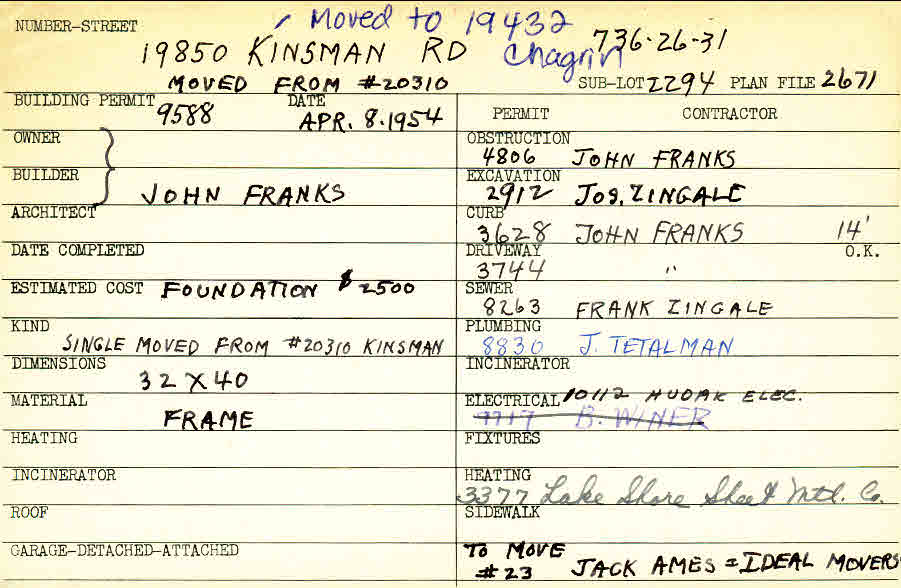 NUMBER-STREET Moved to 19432
19850 KINSMAN RD Chagrin 736-26-31
MOVED FROM #20310 SUB-LOT 2294 PLAN FILE 2671
BUILDING PERMIT DATE
9588 APR. 8. 1954
OWNER
BUILDER
JOHN FRANKS
ARCHITECT
DATE COMPLETED
ESTIMATED COST FOUNDATION $2500
KIND
SINGLE MOVED FROM #20310 KINSMAN
DIMENSIONS
32 X 40
MATERIAL
FRAME
HEATING
INCINERATOR
ROOF
GARAGE-DETACHED-ATTACHED
PERMIT CONTRACTOR
OBSTRUCTION
4806 JOHN FRANKS
EXCAVATION
2912 JOS. ZINGALE
CURB
3628 JOHN FRANKS 14'
DRIVEWAY O.K.
3744 "
SEWER
8263 FRANK ZINGALE
PLUMBING
8830 J. TETALMAN
INCINERATOR
ELECTRICAL 10112 HUDAK ELEC.
9717 B. WINER
FIXTURES
HEATING
3377 Lake Shore Sheet Mtl. Co.
SIDEWALK
TO MOVE
#23 JACK AMES = IDEAL MOVERS